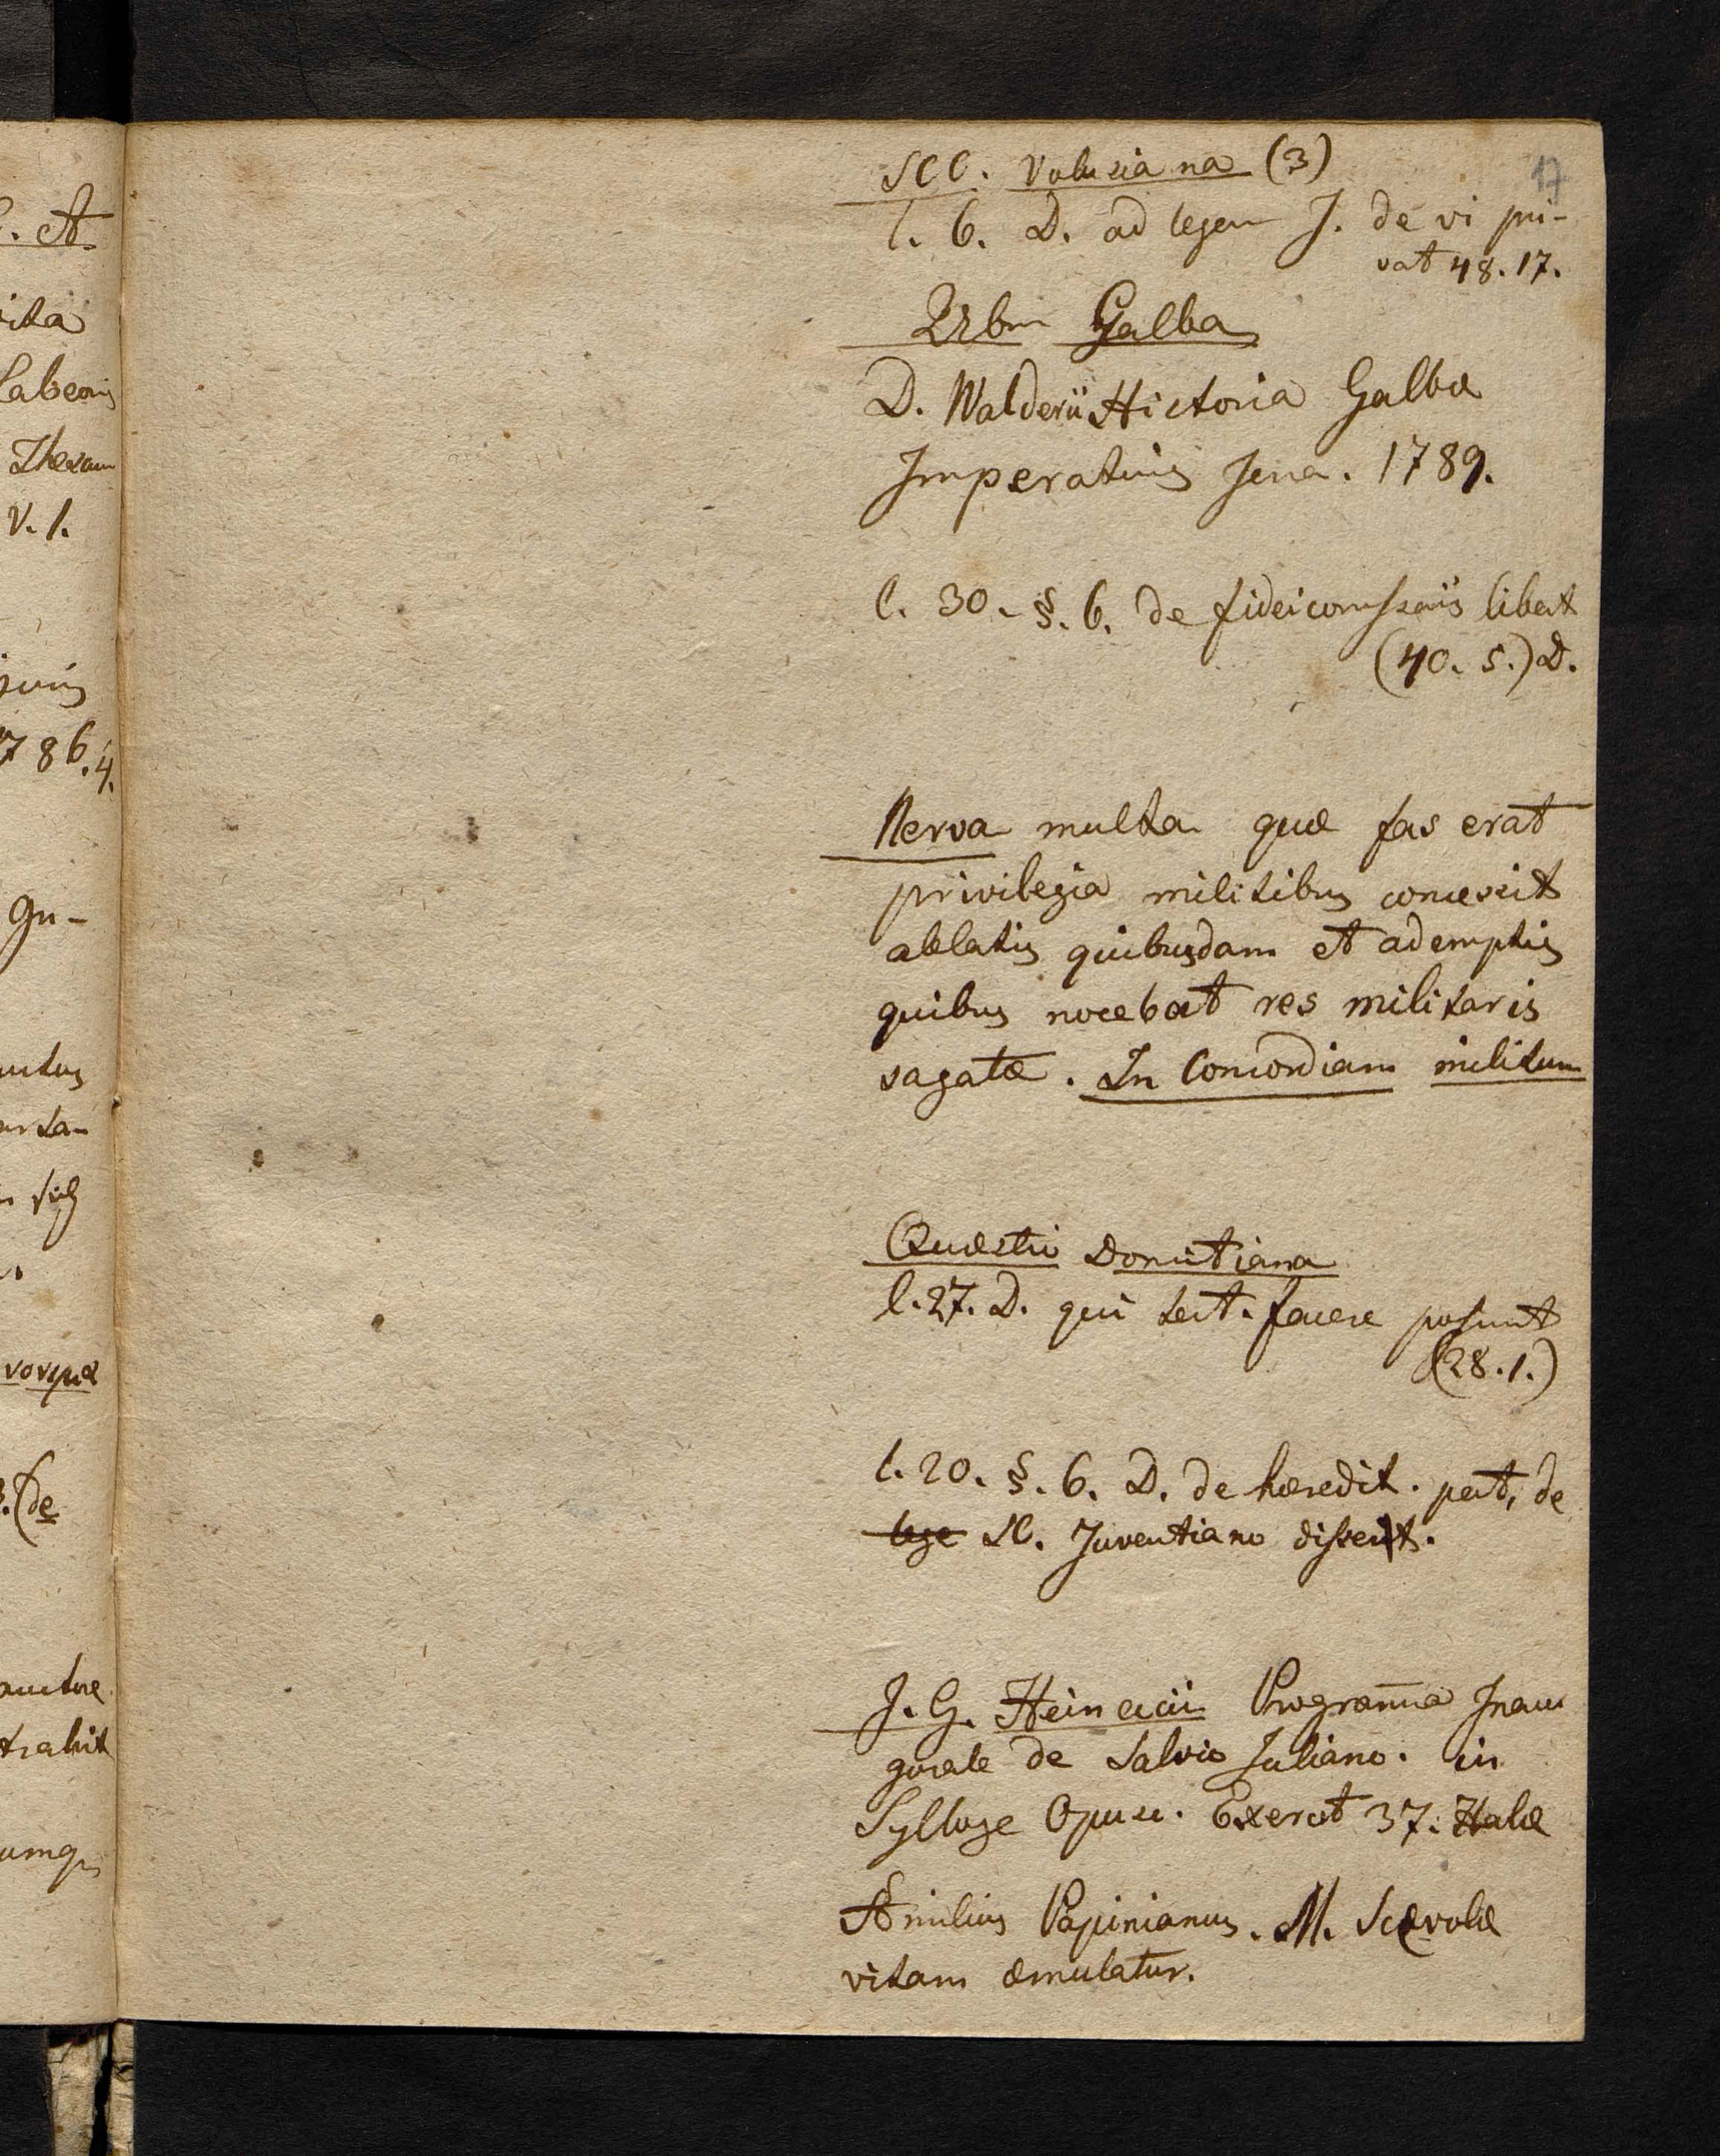 17
SCC. Volusiana (3)
l. 6. D. ad legem J. de vi pri-
vat 48. 17.
Galba
D. Walderii Historia Galbæ
Imperatoris Jena. 1789.
l. 30. §. 6. de fideicomssariis libert
(40. 5.) D.
Nerva multa quæ fas erat
privilegia militibus concessit
ablatis quibusdam et ademptis
quibus nocebat res militaris
sagatæ. In Concordiam militum
Quæstio Domitiana
l. 27. D. qui test. facere possunt
(28. 1.)
l. 20. §. 6. D. de hæredit. pet, de
lege SC. Juventiano dissert.
J. G. Heineccii Programma Inau
gurale de Salvio Juliano. in
Sylloge Opusc. Exercit 37. Halæ
Æmilius Papinianus. M. Scævolæ
vitam æmulatur.
C. A.
vita
Labeonis
V. 1.
juris
1786. 4.
(de
auctore